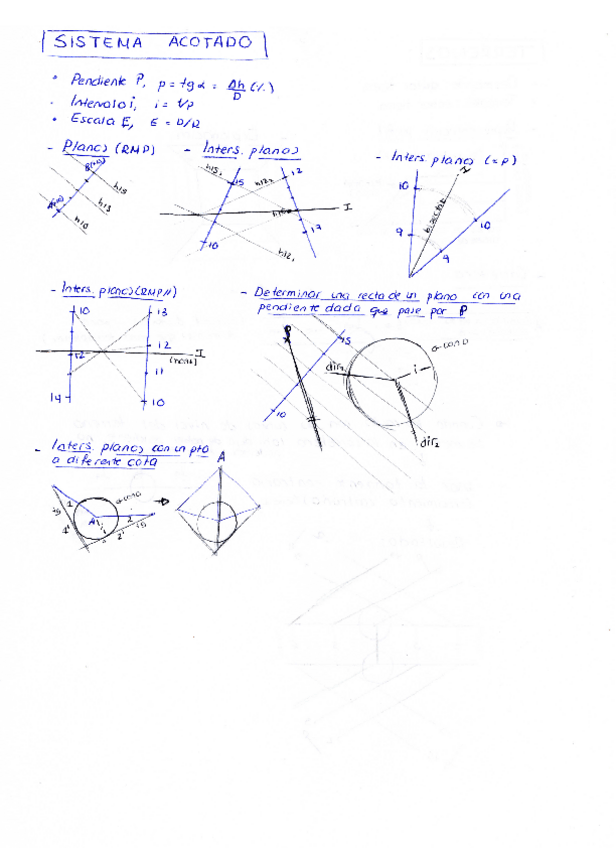 SISTEMA ACOTADO
• Pendiente P, p = tg α = Δh/D (%)
· Intervalo i, i = 1/p
• Escala E, E = D/R
- Planos (RMP)
h15
h13
h10
- Inters. planos
h15,
15
h12,
12
I
10
17
h12,
- Inters planos (= p)
10
9
bisectriz
I
10
9
- Inters. planos (RMP//)
10
13
12
12
I
11
14
10
- Determinar una recta de un plano con una
pendiente dada que pase por P
P
15
10
dir₁
i
σ cono
dir₂
- Inters. planos con un pto
a diferente cota
A
σ cono
1
A
2
1'
2'